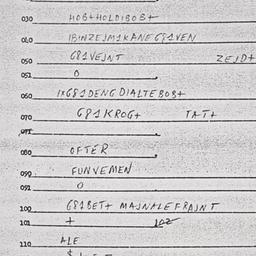 030 HOB+HOLDIBOB+
040 IBINZEJM1KANEG81VEN
050 G81VEJNT ZEJD+
051 0
060 IXG81DENGDIALTEBOB+
070 G81KROG+ TAT+
071
080 OFTER
090 FUNVEMEN
091 0
100 G81BET+ MAJNALEFRAJNT
101 +
110 ALE